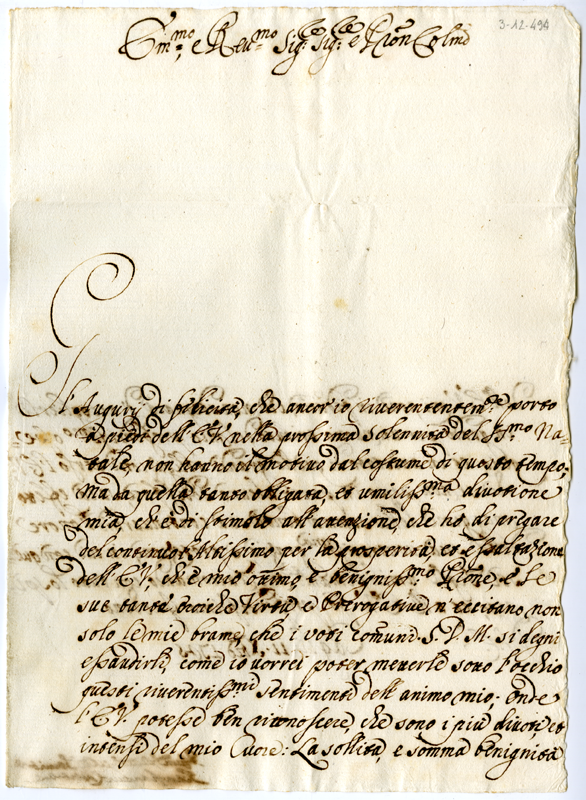 3-12-494
Em.mo, e Reu.mo Sig.re Sig.re e Pron Colmo
Gl' Augurij di felicità, che ancor io riuerentem.te porto
a' piedi dell' E.V. nella prossima Solennità del SS.mo Na-
tale, non hanno il motiuo dal costume di questo tempo,
ma da quella tanto obligata, et umiliss.ma diuotione
mia, che è di stimolo all' attenzione, che ho di pregare
del continuo l' Altissimo per la prosperità, et essaltazione
dell' E.V., che è mio ottimo, e benigniss.mo Pron̄e, e Se
sue tante eroiche Virtù e Prerogatiue n' eccitano non
solo le mie brame, che i voti comuni. S. D. M. si degni
essaudirli, come io vorrei poter metterle sotto l' occhio
questi riuerentiss.mi sentimenti dell' animo mio; onde
l' E.V. potesse ben riconoscere, che sono i più diuoti et
intensi del mio Cuore: La sollita, e somma benignità